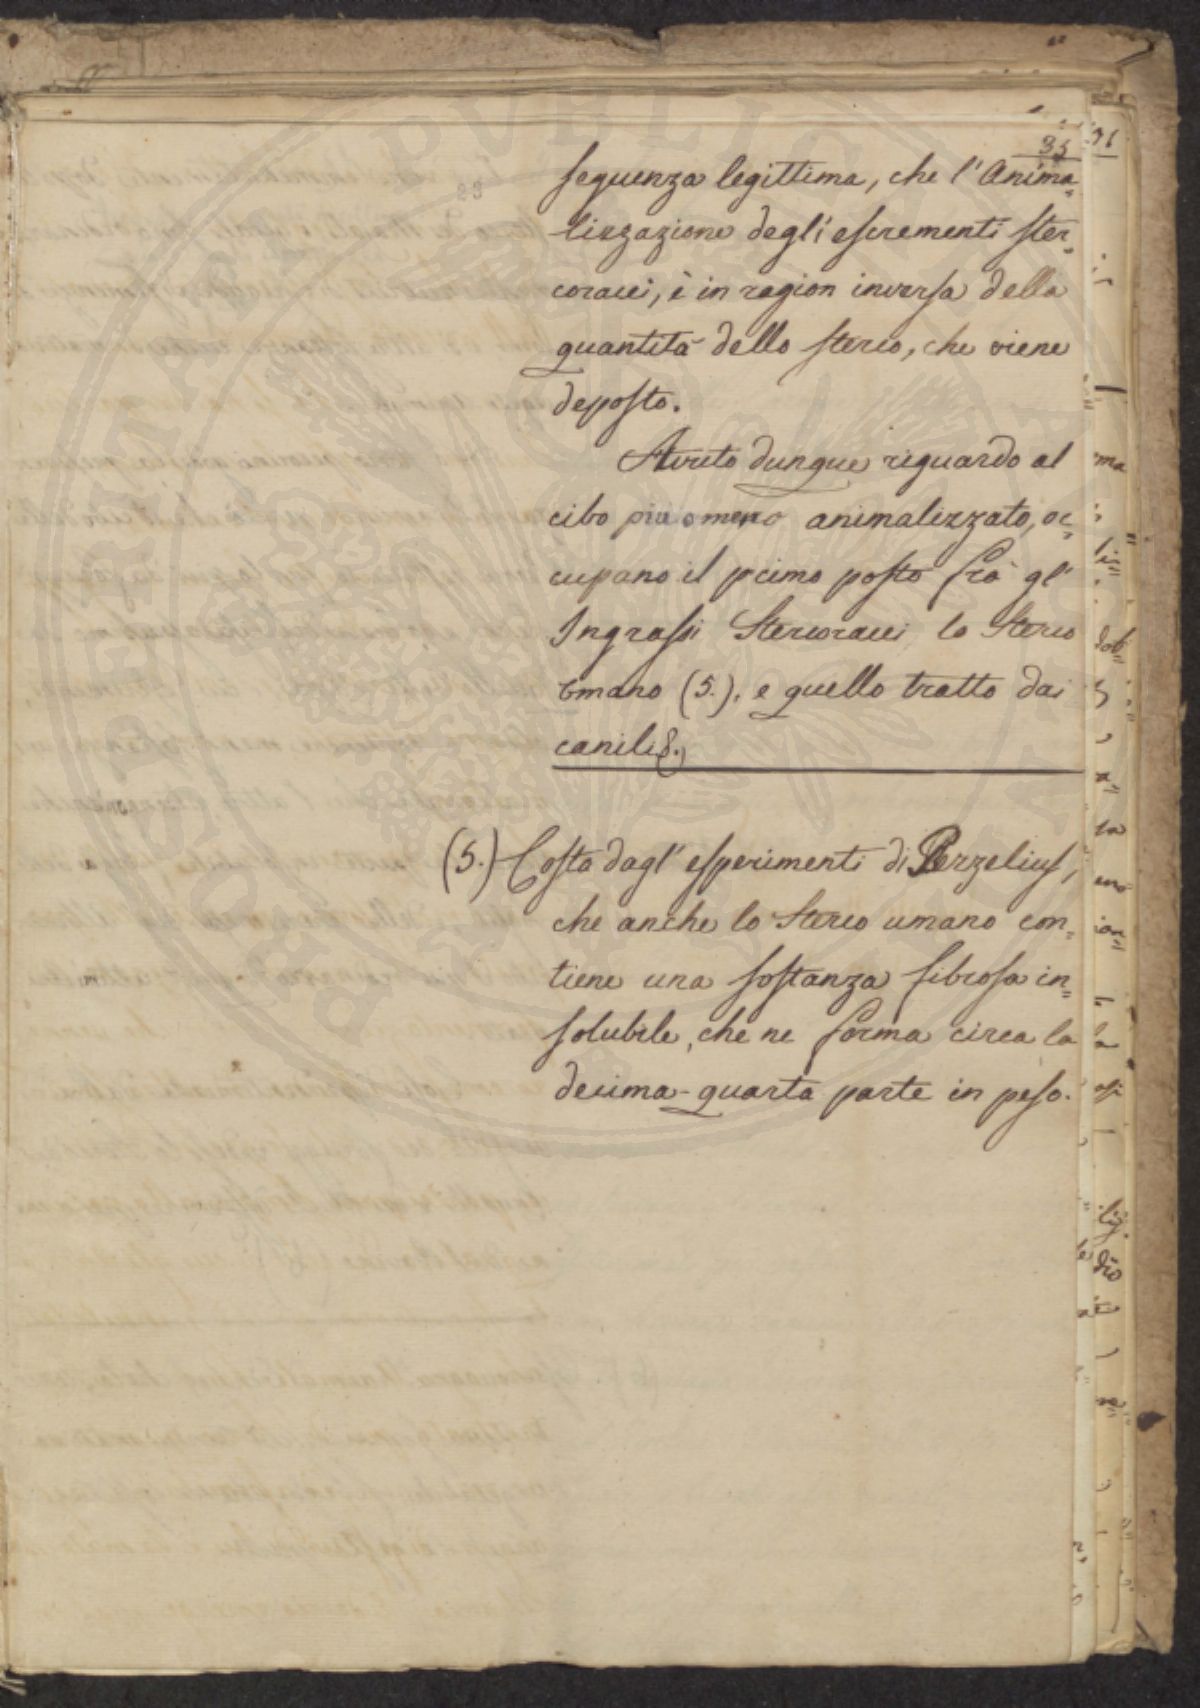 35
seguenza legittima, che l'Anima=
lizzazione degl'escrementi ster=
coracei, è in ragion inversa della
quantità dello sterco, che viene
deposto.
Avuto dunque riguardo al
cibo più o meno animalizzato, oc=
cupano il primo posto frà gl'
Ingrassi Stercoracei lo Sterco
Umano (5.), e quello tratto dai
canili.
(5.) Costa dagl'esperimenti di Berzelius,
che anche lo Sterco umano con=
tiene una sostanza fibrosa in=
solubile, che ne forma circa la
decima-quarta parte in peso.